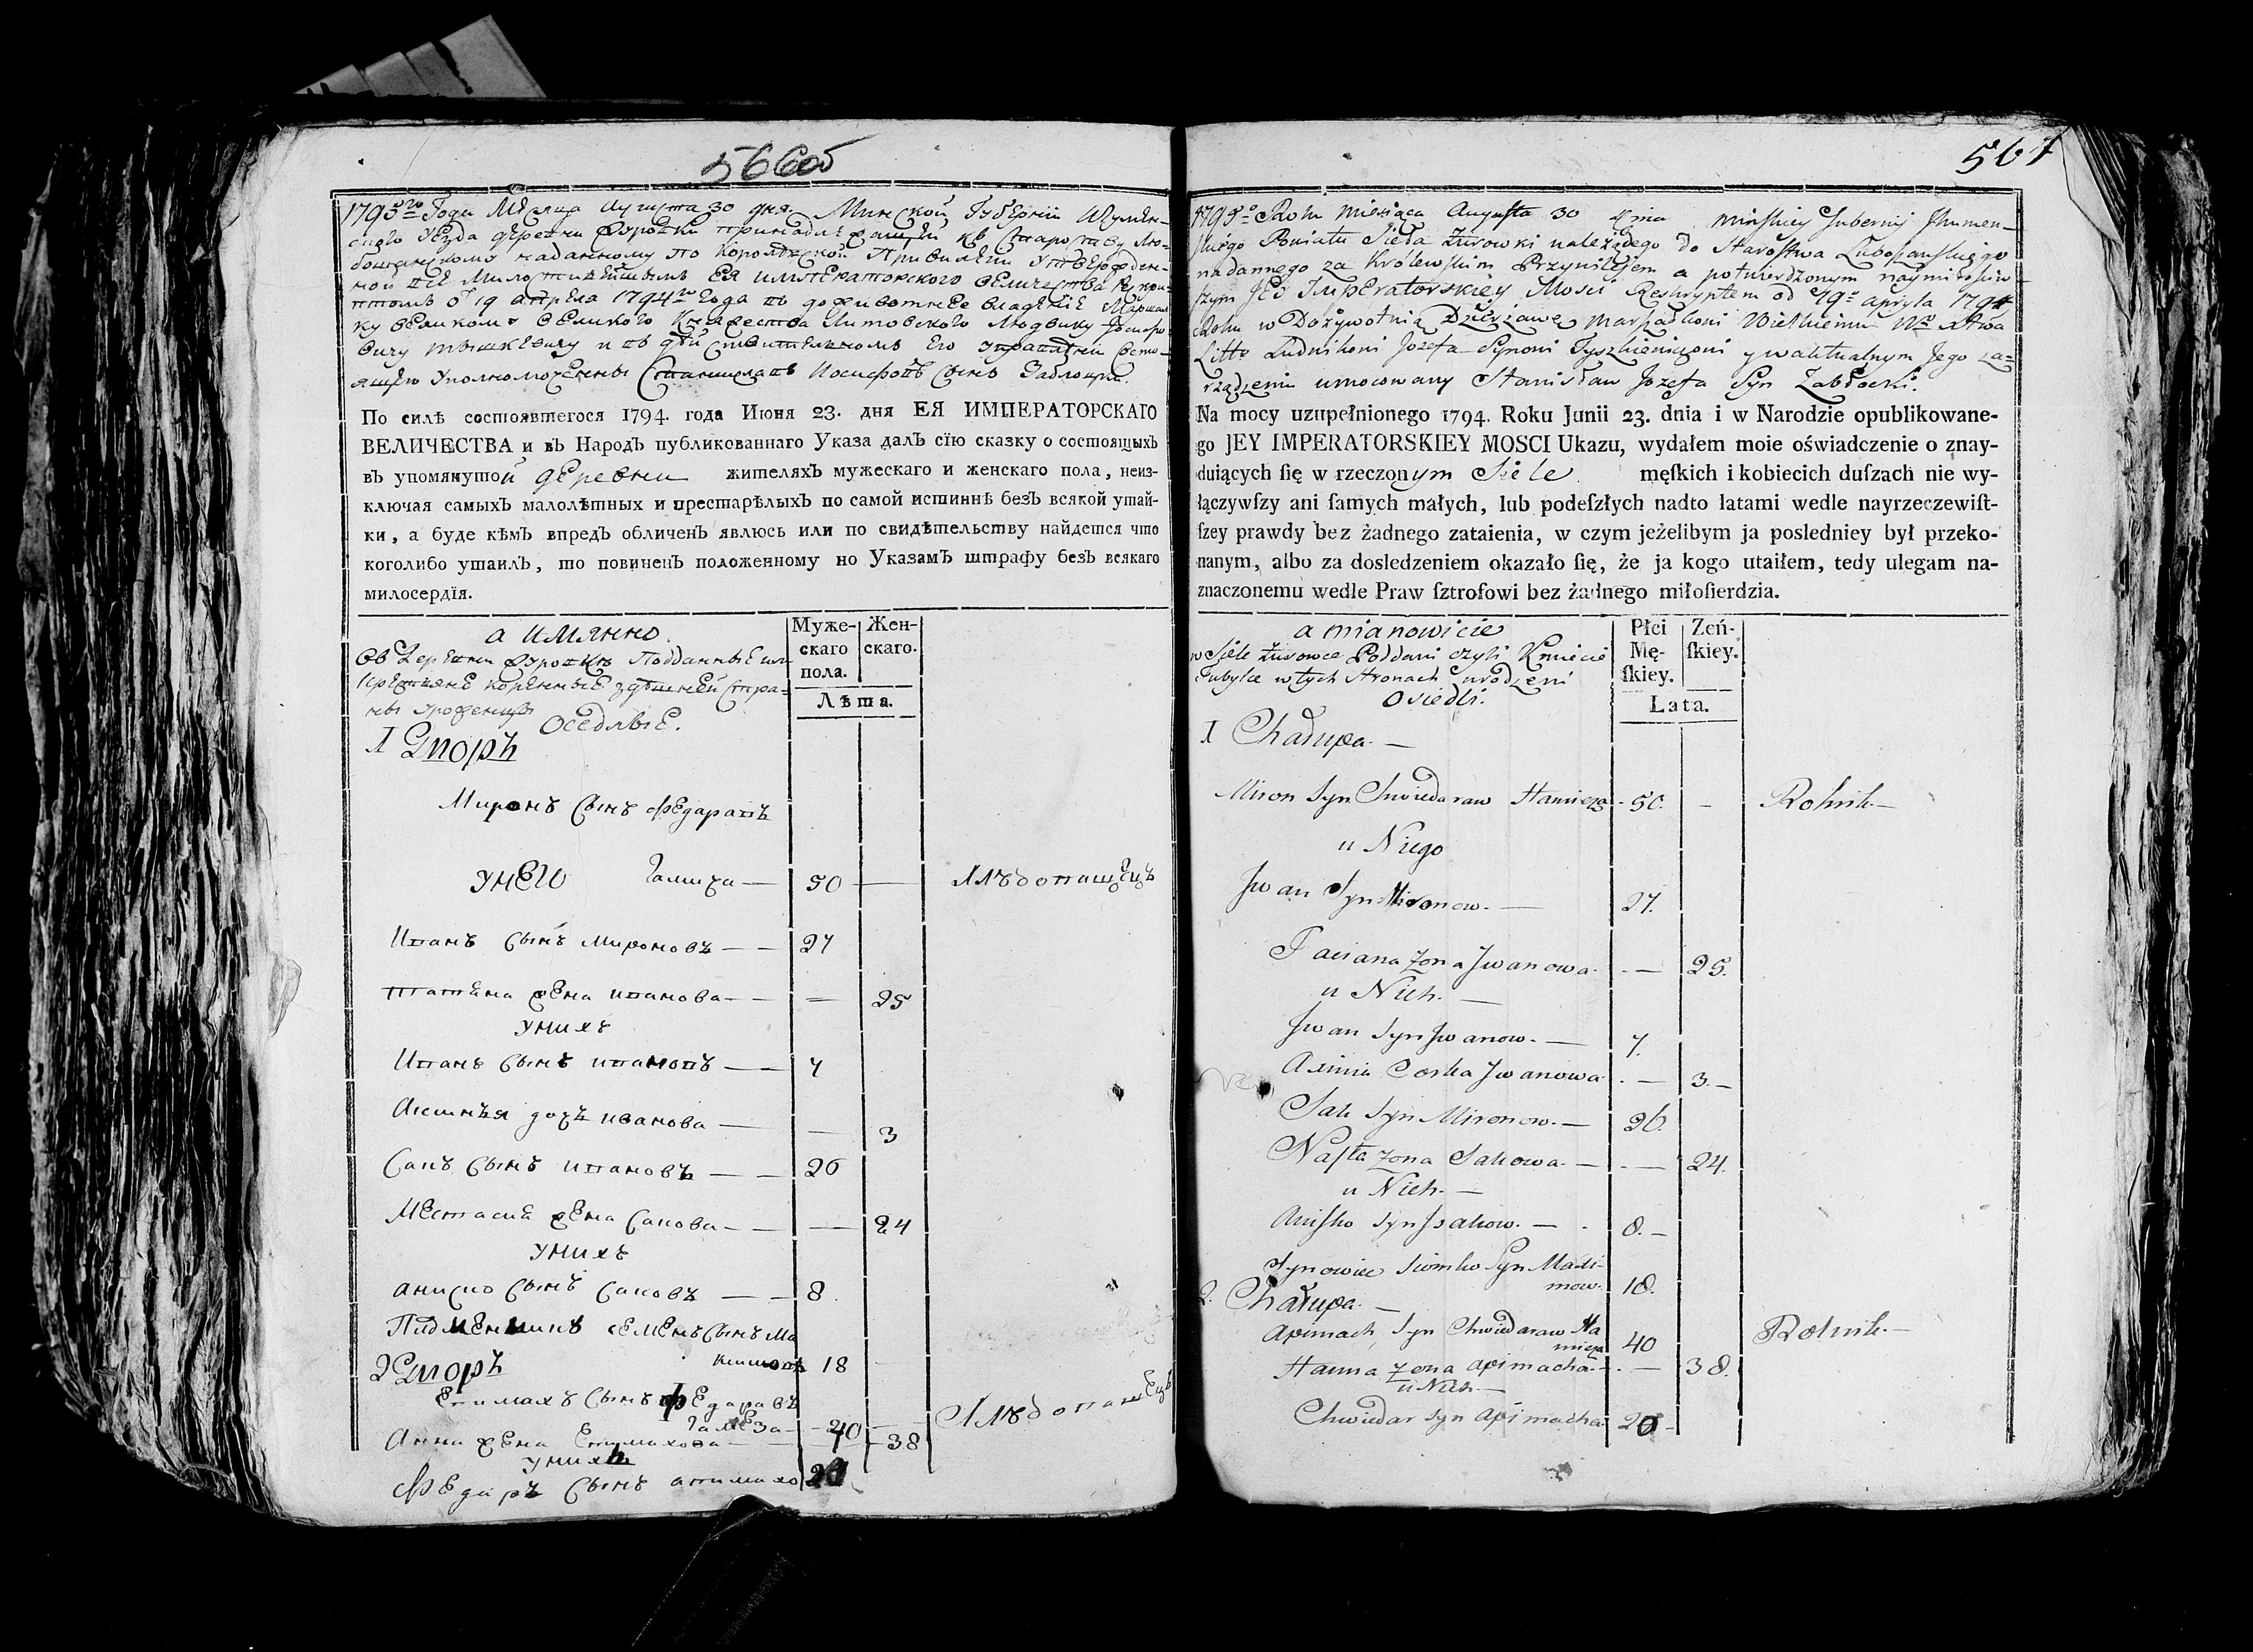 566об
1795го Года Месяца Августа 30 дня Минской Губернии Игумен-
ского Уезда деревни Журовки принадлежащей къ Староству Лю-
бошанскому наданному по Королевской Привилегии утвержден-
ной все Милостивейшимъ Ея императорского величества
от 19 апреля 1794го Года въ доживотнее владение Маршал
ку великому великого Княжества Литовского Людвику Иосифо
вичу тышкевичу и въ его управлении
Уполномоченны Станиславъ Иосифовъ Сынъ Заблоцки.
По силѣ состоявшегося 1794. года Июня 23. дня ЕЯ ИМПЕРАТОРСКАГО
ВЕЛИЧЕСТВА и въ Народъ публикованнаго Указа далъ сїю сказку о состоящыхъ
въ упомянутой деревни жителяхъ мужескаго и женскаго пола, неиз-
ключая самыхъ малолѣтныхъ и престарѣлыхъ по самой истиннѣ безъ всякой утай-
ки, а буде кѣмъ впредъ обличенъ явлюсь или по свидѣтельству найдется что
коголибо утаилъ, то повиненъ положенному по Указамъ штрафу безъ всякаго
милосердїя.
а имянно.
Въ Деревни Журовке Подданные или
Крестьяне коренные здешней Стра-
ны уроженцы
Оседлые.
Муже-
скаго
пола.
Жен-
скаго.
Лѣта.
1 Дворъ
Миронъ Сынъ Федаравъ
у него Гамеза — 50 — Хлебопашецъ
Иванъ Сынъ Мироновъ — — 27
татяна жена иванова — — 25
у нихъ
Иванъ Сынъ ивановъ — — 7
Аксинья дочь иванова — — 3
Сакъ Сынъ ивановъ — — 26
Настасия жена Сакова — — 24
у нихъ
аниско Сынъ Саковъ — — 8.
Племенникъ семенъ Сынъ Ма
ксимовъ 18 —
2 Дворъ
Епимахъ Сынъ федаравъ
Гамеза — 40 — Хлебопашецъ
Анна жена Епимахова — — 38
у нихъ
Федаръ Сынъ апимахо
567
1795o Roku miesiąca Augusta 30 dnia Minskiey Gubernij Jhumen-
skiego Powiatu Sieła Żurowki należącego do Starostwa Lubo
nadannego za Królewskim Przywilejem a potwierdzonym naymiłościw
szym Jey Imperatorskiey Mosci Reskryptem od 19o apryla 1794
Roku w Dożywotnią Dzierżawę Marszałkowi Wielkiemu Wo Xtwa
Litto Ludwikowi Jozefa Synowi Tyszkiewiczowi y w aktualnym Jego za-
rządzeniu umocowany Stanisław Jozefa Syn Zabłocki.
Na mocy uzupełnionego 1794. Roku Junii 23. dnia i w Narodzie opublikowane-
go JEY IMPERATORSKIEY MOSCI Ukazu, wydałem moie oświadczenie o znay-
duiących ſię w rzeczonym Siele męſkich i kobiecich duſzach nie wy-
łączywſzy ani ſamych małych, lub podeſzłych nadto latami wedle nayrzeczewiſt-
ſzey prawdy bez żadnego zataienia, w czym jeżelibym ja posledniey był przeko-
nanym, albo za dosledzeniem okazało ſię, że ja kogo utaiłem, tedy ulegam na-
znaczonemu wedle Praw ſztrofowi bez żadnego miłoſierdzia.
a mianowicie
w Siele Żurowce Poddani czyli Kmiecie
Tubylce w tych Stronach urodzeni
Osiedli.
Płci
Mę-
ſkiey.
Zeń-
ſkiey.
Lata.
1 Chałupa. —
Miron Syn Chwiedaraw Hamieza - 50. - Rolnik. —
u Niego
Jwan Syn Mironow. — 27.
Taciana Zona Jwanowa. - — 25.
u Nich. —
Jwan Syn Jwanow. — 7.
Axinia Corka Jwanowa. - — 3. —
Sak Syn Mironow. — 26.
Nasta Zona Sakowa. — - — 24.
u Nich. —
Anisko Syn Sakow. — - 8. —
Synowiec Siomko Syn Maxi-
mow. 18.
2. Chałupa. —
Apimach Syn Chwiedaraw Ha
mieza 40 Rolnik. —
Hanna Zona Apimacha - - — 38.
u Nich —
Chwiedar Syn Apimacha 20 -